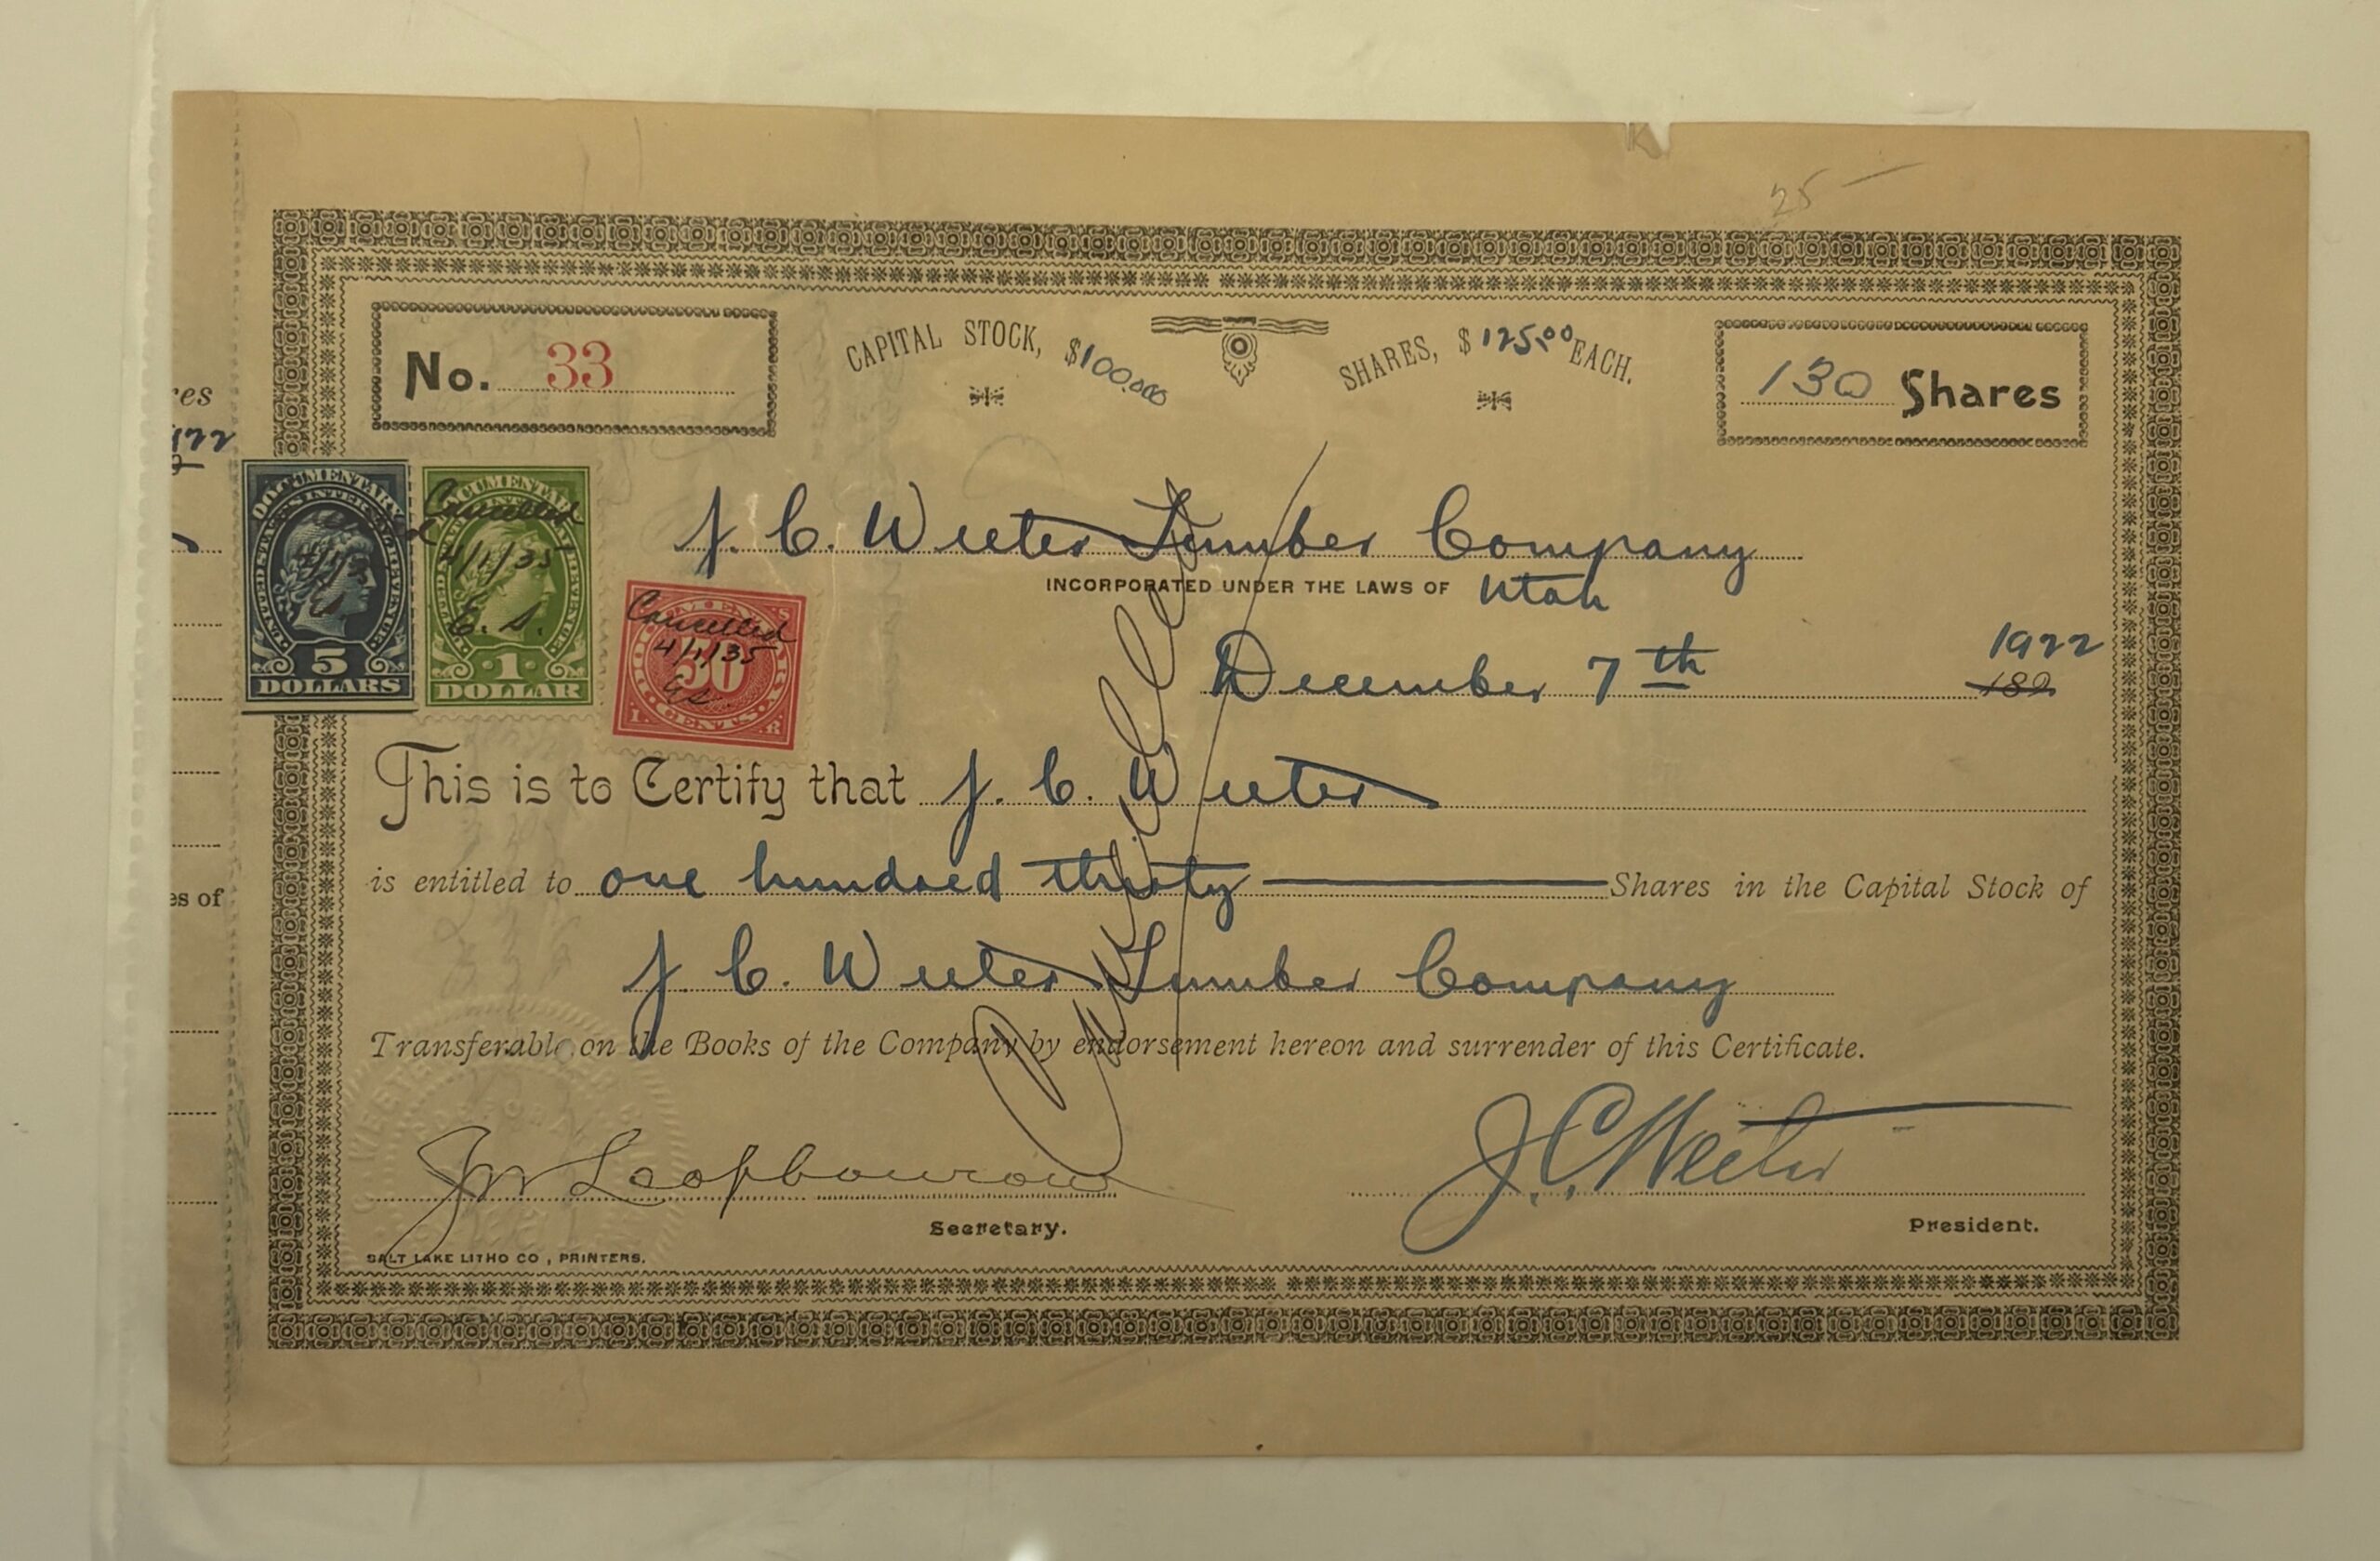 25 —
No. 33
CAPITAL STOCK, $100,000
SHARES, $125.00 EACH.
130 Shares
res
1922
DOCUMENTARY
5
DOLLARS
DOCUMENTARY
Cancelled
4/1/35
E. S.
1
DOLLAR
J. C. Weeter Lumber Company
INCORPORATED UNDER THE LAWS OF Utah
Cancelled
4/1/35
50
CENTS
I. R.
December 7th 1922
189
This is to Certify that J. C. Weeter
is entitled to one hundred thirty Shares in the Capital Stock of
es of
J. C. Weeter Lumber Company
Transferable on the Books of the Company by endorsement hereon and surrender of this Certificate.
Cancelled
J W Loofbourow
J. C. Weeter
Secretary.
President.
SALT LAKE LITHO CO., PRINTERS.